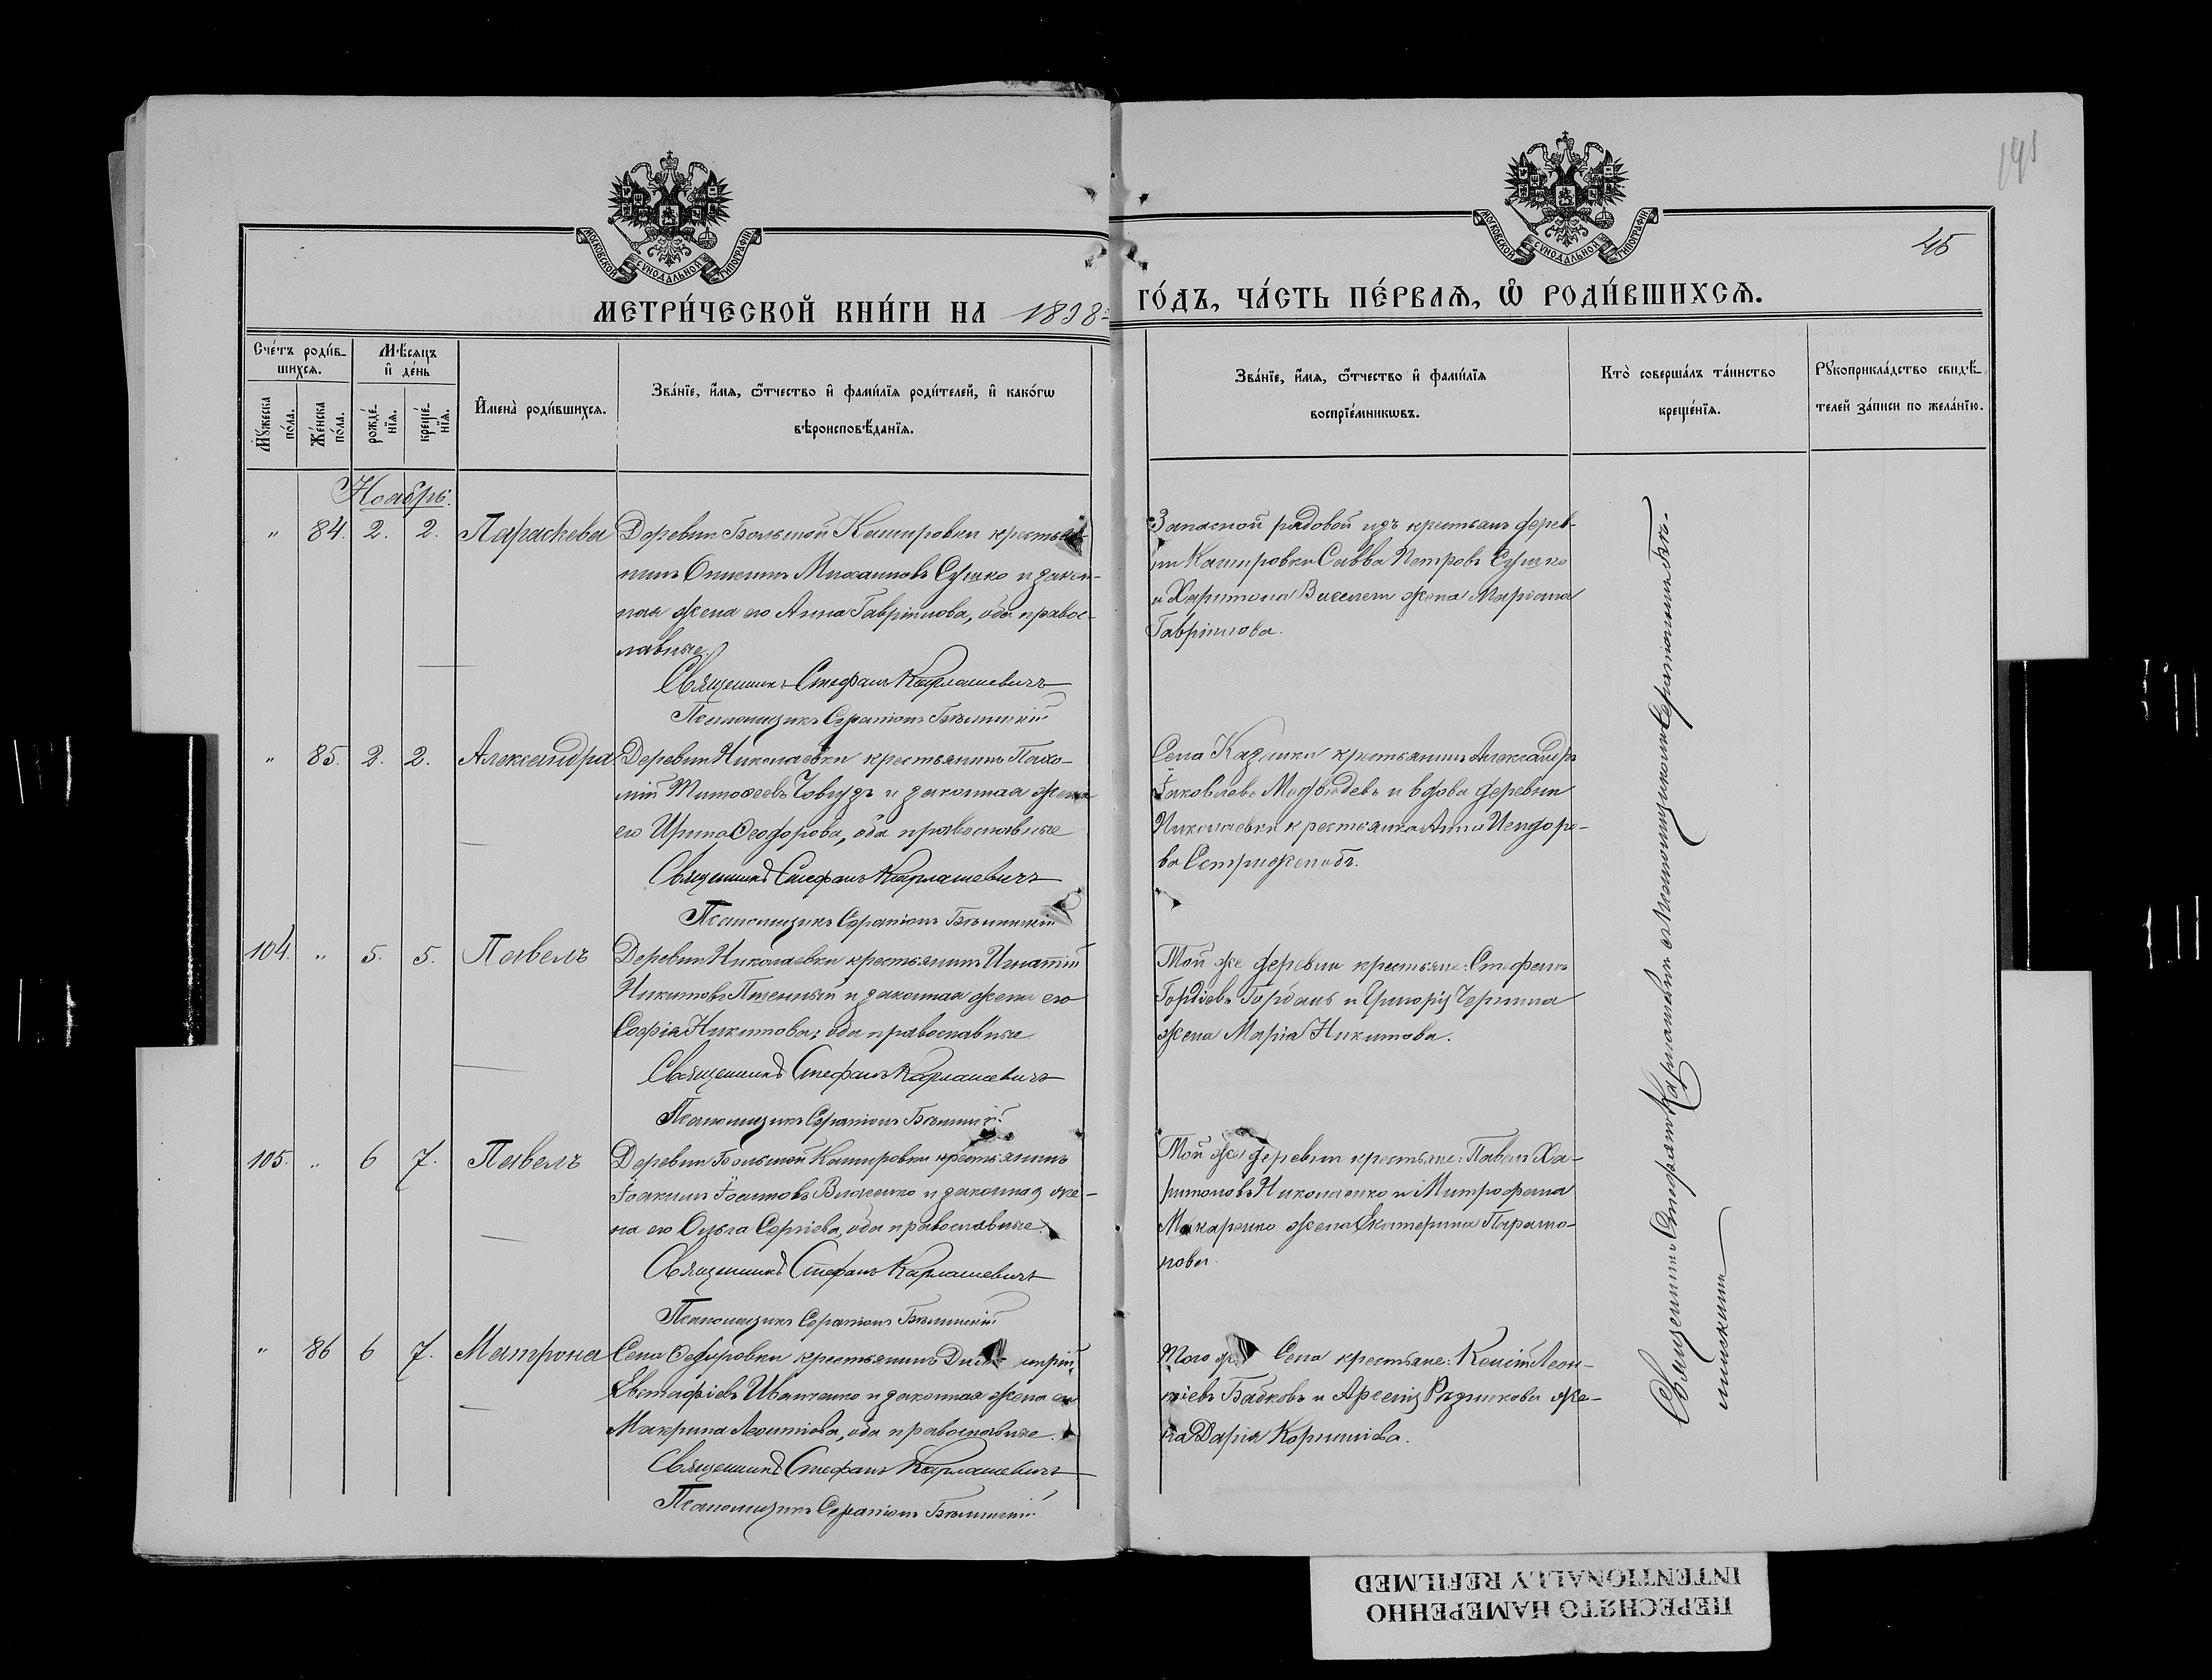 191
45
МОСКОВСКОЙ СѴНОДАЛЬНОЙ ТИПОГРАФІИ
МОСКОВСКОЙ СѴНОДАЛЬНОЙ ТИПОГРАФІИ
МЕТРИ́ЧЕСКОЙ КНИ́ГИ НА 1898
ГО́ДЪ, ЧА́СТЬ ПЕ́РВАѦ, Ѽ РОДИ́ВШИХСѦ.
Сче́тъ роди́в-
шихсѧ.
Мꙋ́жеска
по́ла.
Же́нска
по́ла.
Мѣ́сѧцъ
и҆ де́нь
рожде́-
нїѧ.
креще́-
нїѧ.
И҆мена̀ роди́вшихсѧ.
Зва́нїе, и҆́мѧ, ѻ҆́тчество и҆ фами́лїѧ роди́телей, и҆ како́гѡ
вѣроисповѣ́данїѧ.
Зва́нїе, и҆́мѧ, ѻ҆́тчество и҆ фами́лїѧ
воспрїе́мникѡвъ.
Кто̀ соверша́лъ та́инство
креще́нїѧ.
Рꙋкоприкла́дство свидѣ́-
телей за́писи по жела́нїю.
Ноябрь.
" 84. 2. 2. Параскева
Деревни Большой Кашировки крестья-
нинъ Михаиловъ Сушко и закон-
ная жена его Анна Гавріилова, оба правос-
лавные.
Священникъ Стефанъ Карлашевичъ
Псаломщикъ Серапіонъ
Запасной рядовой изъ крестьянъ дерев-
ни Кашировки Савва Петровъ Сушко
и Харитона жена Маріана
Гавріилова.
" 85. 2. 2. Александра
Деревни Николаевки крестьянинъ Пахо-
мій Тимофеевъ и законная жена
его Ирина Феодорова, оба православные
Священникъ Стефанъ Карлашевичъ
Псаломщикъ Серапіонъ
Села крестьянинъ Александръ
Іаковлевъ Медвѣдевъ и вдова деревни
Николаевки крестьянка Анна
104. " 5. 5. Павелъ
Деревни Николаевки крестьянинъ Игнатій
Никитовъ Пшенный и законная жена его
Софія Никитова; оба православные
Священникъ Стефанъ Карлашевичъ
Псаломщикъ Серапіонъ
Той же деревни крестьяне: Стефанъ
Гордіевъ и Григорія
жена Марія Никитова.
105. " 6 7. Павелъ
Деревни Большой Кашировки крестьянинъ
Іоакимъ Іоанновъ и законная же-
на его Ольга Сергіева, оба православные.
Священникъ Стефанъ Карлашевичъ
Псаломщикъ Серапіонъ
Той же деревни крестьяне: Павелъ Ха-
ритоновъ Николаенко и Митрофана
Макаренко жена Екатерина Парамо-
нова.
" 86 6 7. Матрона
Села крестьянинъ Димитрій
Евстафіевъ Иванченко и законная жена его
Макрина Леонтіева, оба православные.
Священникъ Стефанъ Карлашевичъ
Псаломщикъ Серапіонъ
Того же Села крестьяне: Леон-
тіевъ Бабковъ и Арсенія Рѣзникова же-
на Дарія Корниліева.
Священникъ Стефанъ Карлашевичъ съ Псаломщикомъ Серапіономъ
ПЕРЕСНЯТО НАМЕРЕННО
INTENTIONALLY REFILMED